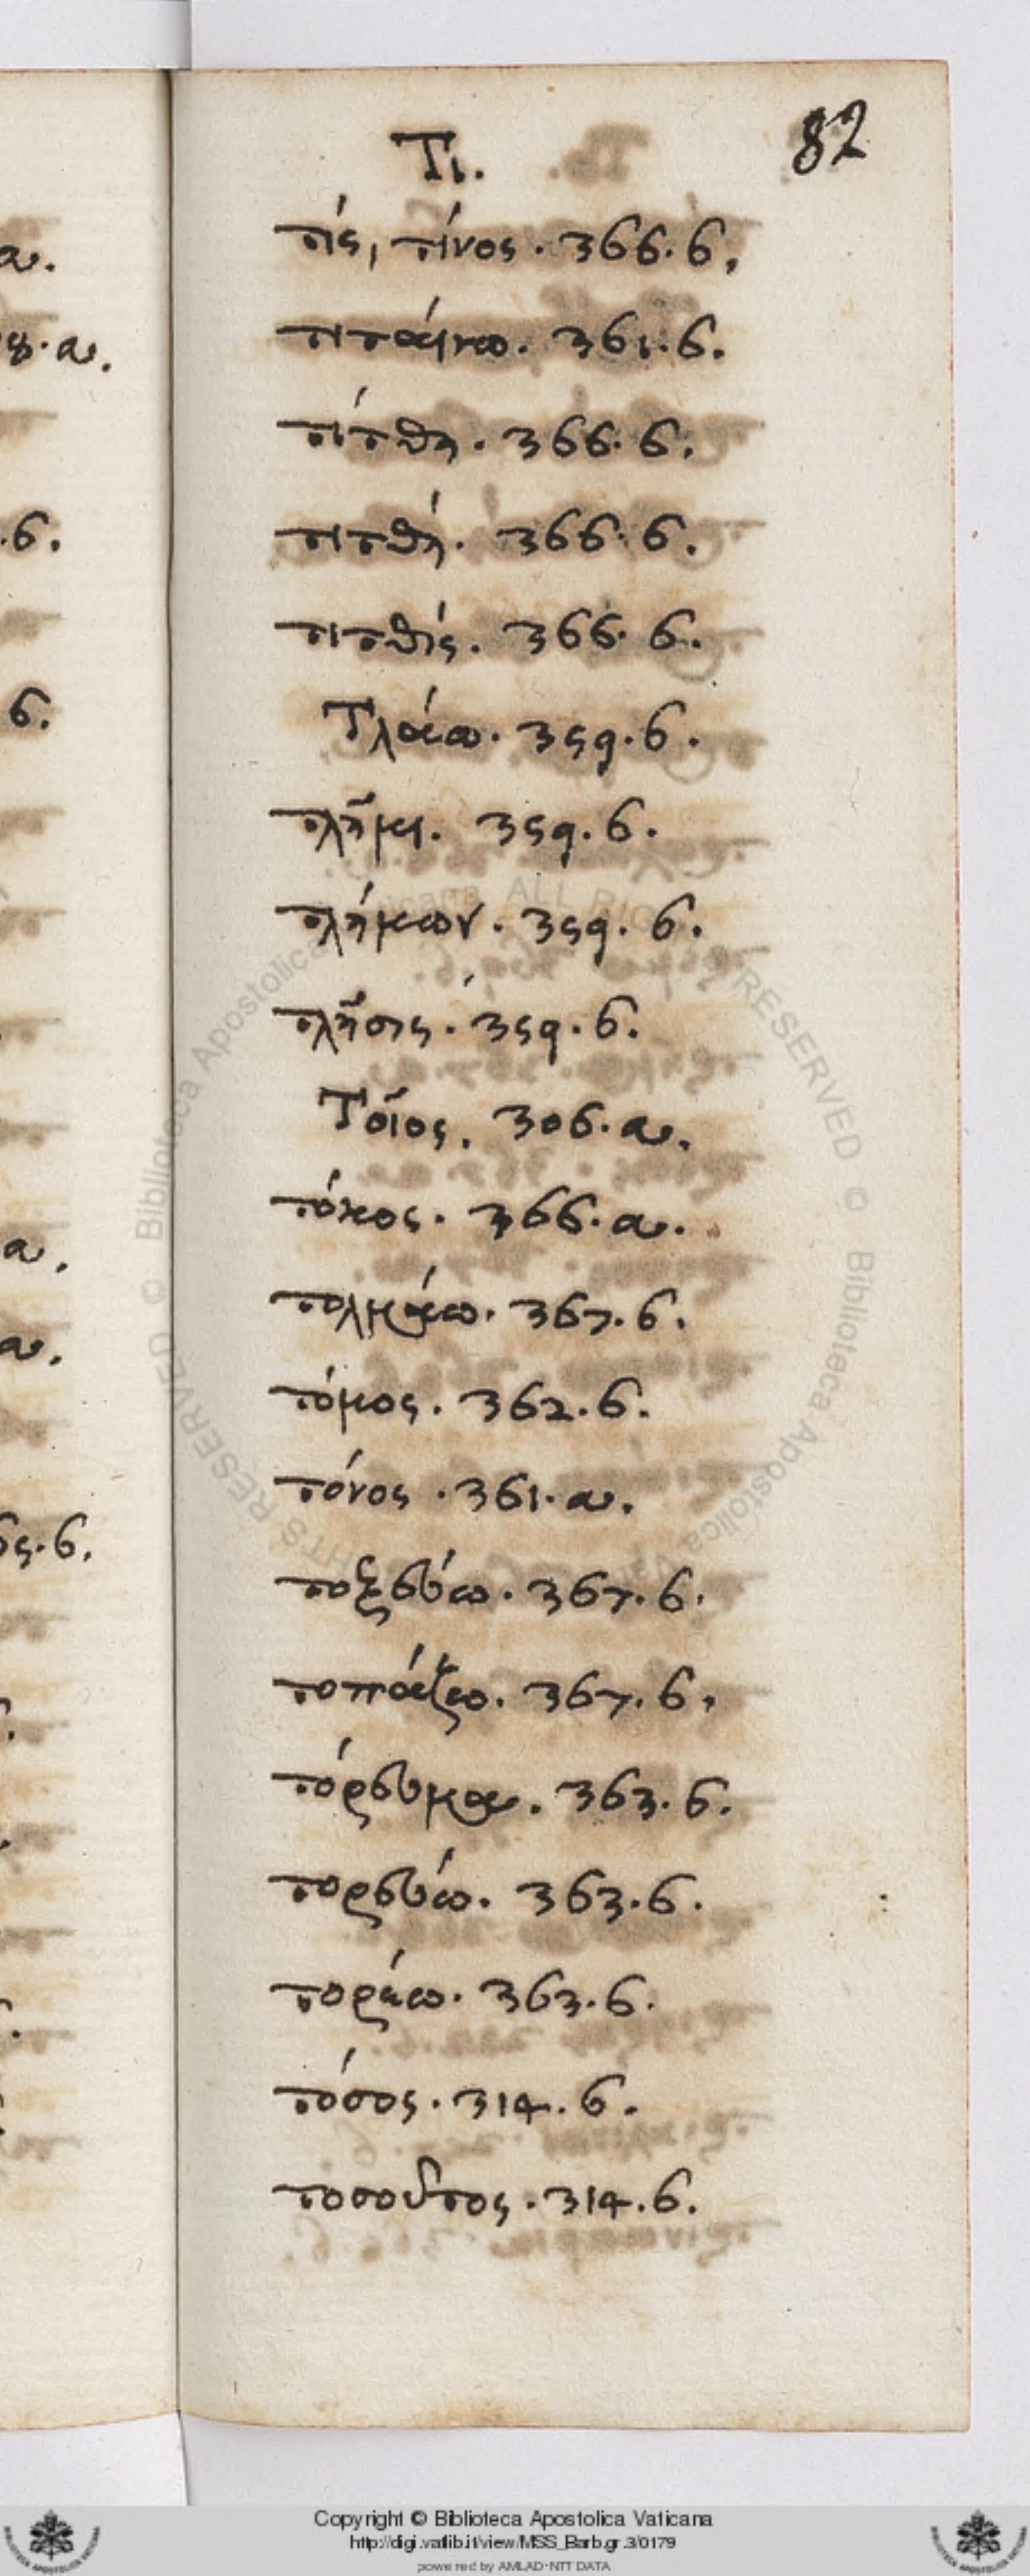 82
Τι.
τίς, τίνος. 366. b.
τιταίνω. 361. b.
τίτθη. 366. b.
τιτθή. 366. b.
τιτθίς. 366. b.
Τλάω. 359. b.
τλῆμι. 359. b.
τλήμων. 359. b.
τλῆσις. 359. b.
Τοῖος. 306. a.
τόκος. 366. a.
τολμάω. 367. b.
τόμος. 362. b.
τόνος. 361. a.
τοξεύω. 367. b.
τοπάζω. 367. b.
τόρευμα. 363. b.
τορεύω. 363. b.
τορέω. 363. b.
τόσος. 314. b.
τοσοῦτος. 314. b.
Copyright © Biblioteca Apostolica Vaticana
http://digi.vatlib.it/view/MSS_Barb.gr.3/0179
powered by AMLAD-NTT DATA